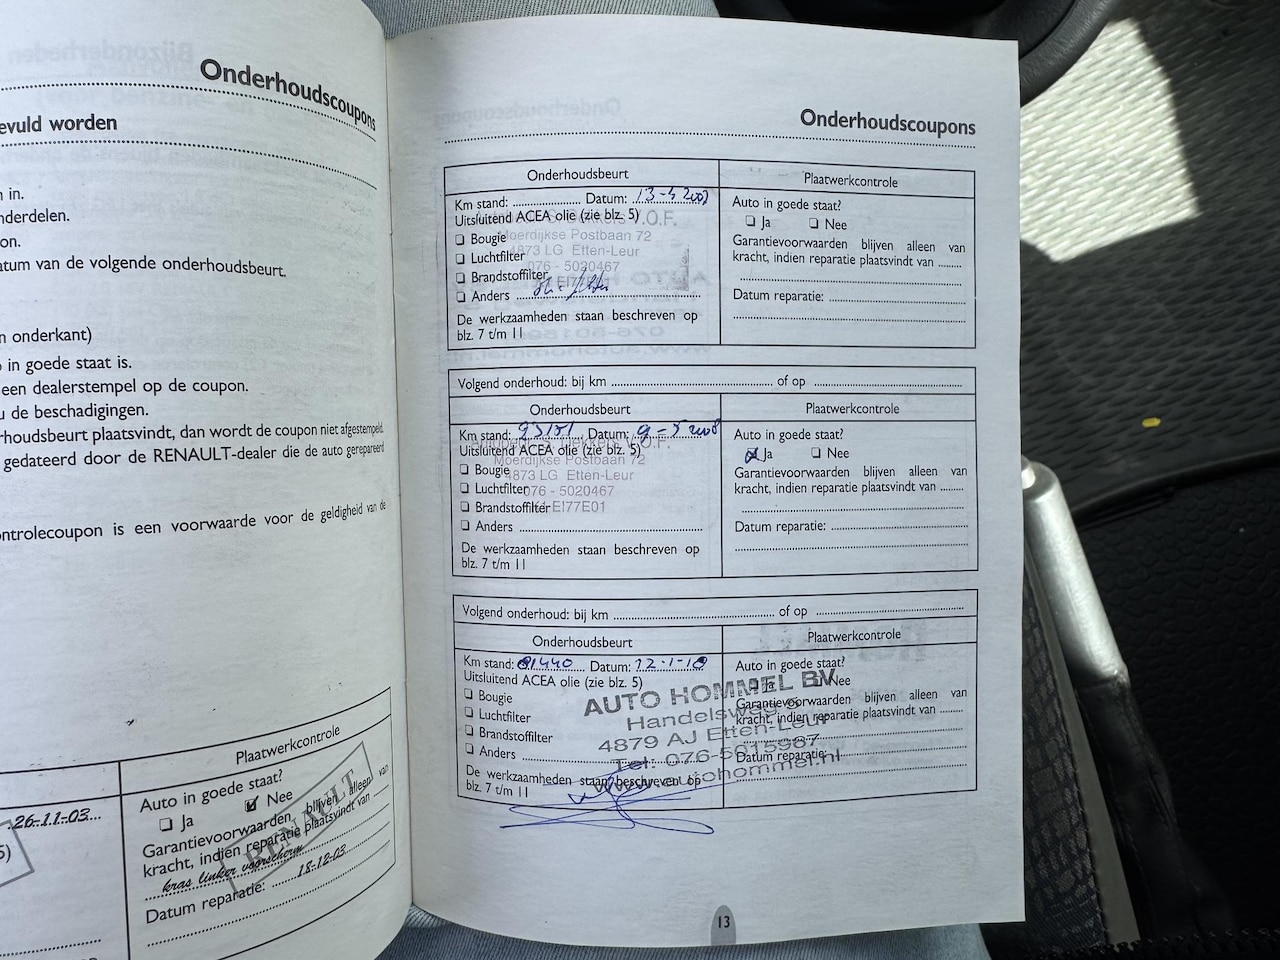 Onderhoudscoupons
evuld worden
n in.
nderdelen.
on.
atum van de volgende onderhoudsbeurt.
n onderkant)
o in goede staat is.
een dealerstempel op de coupon.
u de beschadigingen.
rhoudsbeurt plaatsvindt, dan wordt de coupon niet afgestempeld
gedateerd door de RENAULT-dealer die de auto gerepareerd
ontrolecoupon is een voorwaarde voor de geldigheid van de
Plaatwerkcontrole
Auto in goede staat?
Ja Nee
Garantievoorwaarden blijven alleen van
kracht, indien reparatie plaatsvindt van
kras linker voorscherm
Datum reparatie: 18-12-03
26-11-03
5)
RENAULT
Onderhoudscoupons
Onderhoudsbeurt
Km stand: Datum: 13-4 2007
Uitsluitend ACEA olie (zie blz. 5)
Bougie
Luchtfilter
Brandstoffilter
Anders
De werkzaamheden staan beschreven op
blz. 7 t/m 11
V.O.F.
Moerdijkse Postbaan 72
4873 LG Etten-Leur
076 - 5020467
Plaatwerkcontrole
Auto in goede staat?
Ja Nee
Garantievoorwaarden blijven alleen van
kracht, indien reparatie plaatsvindt van
Datum reparatie:
Volgend onderhoud: bij km of op
Onderhoudsbeurt
Km stand: Datum: 9-5 2008
Uitsluitend ACEA olie (zie blz. 5)
Bougie
Luchtfilter
Brandstoffilter
Anders
De werkzaamheden staan beschreven op
blz. 7 t/m 11
Dekkers V.O.F.
Moerdijkse Postbaan 72
4873 LG Etten-Leur
076 - 5020467
EI77E01
Plaatwerkcontrole
Auto in goede staat?
Ja Nee
Garantievoorwaarden blijven alleen van
kracht, indien reparatie plaatsvindt van
Datum reparatie:
Volgend onderhoud: bij km of op
Onderhoudsbeurt
Km stand: 81440 Datum: 12-1-10
Uitsluitend ACEA olie (zie blz. 5)
Bougie
Luchtfilter
Brandstoffilter
Anders
De werkzaamheden staan beschreven op
blz. 7 t/m 11
Plaatwerkcontrole
Auto in goede staat?
Ja Nee
Garantievoorwaarden blijven alleen van
kracht, indien reparatie plaatsvindt van
Datum reparatie:
AUTO HOMMEL BV
Handelsweg 6
4879 AJ Etten-Leur
Tel: 076-5015987
www.autohommel.nl
13